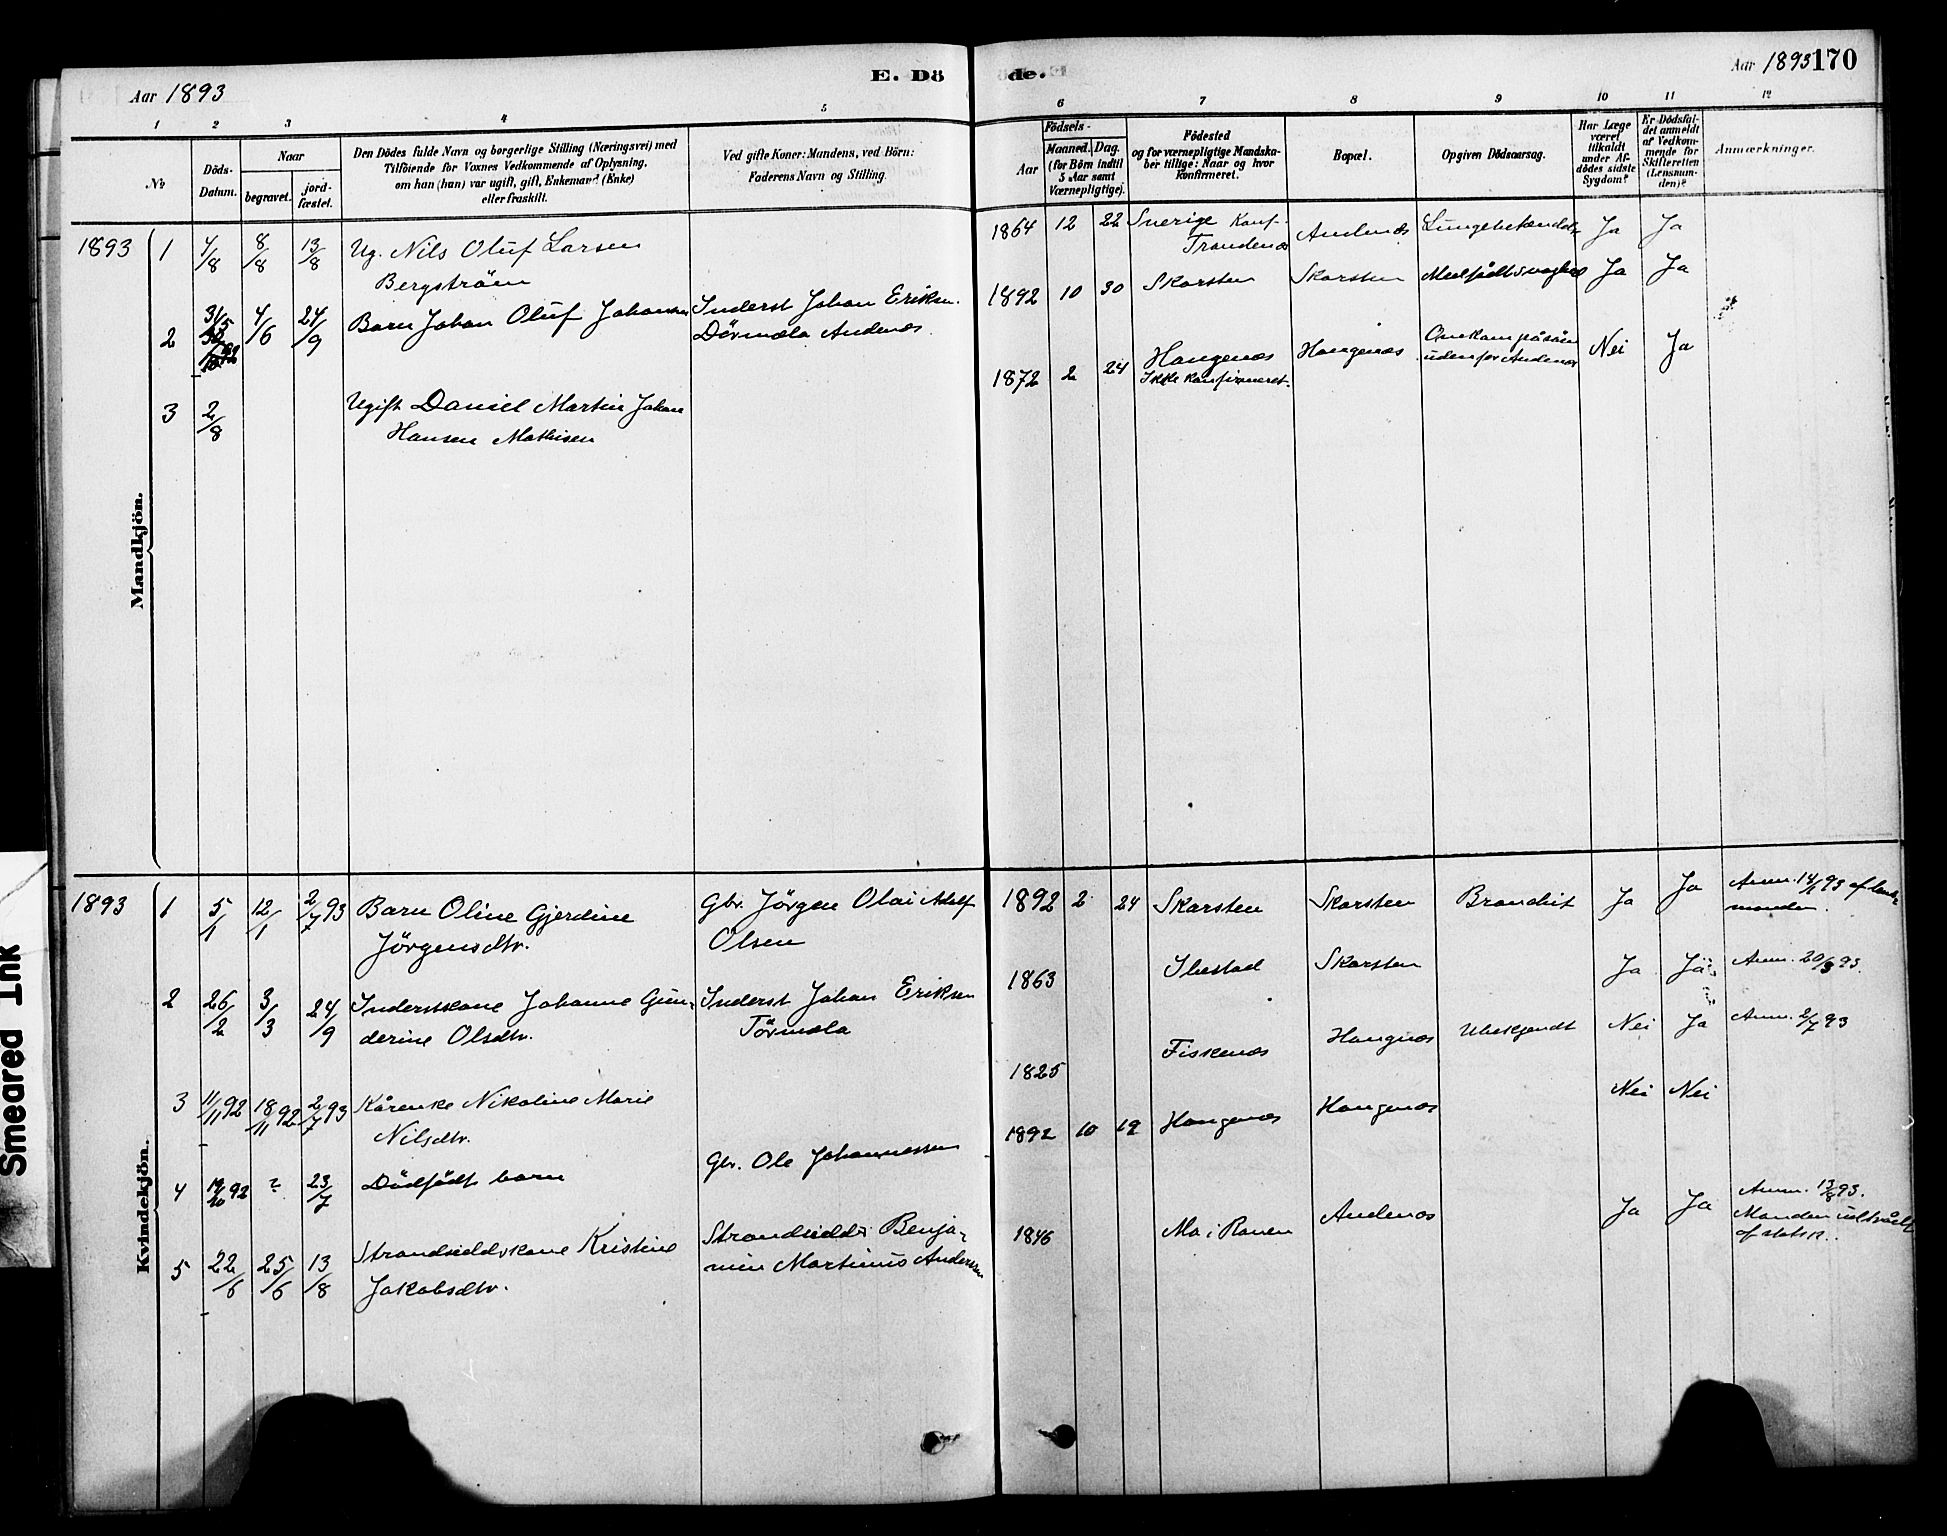 Aar 1893
E. Dö
de.
Aar 1893 170
1 2 3 4 5 6 7 8 9 10 11 12
No
Döds-
Datum.
Naar
begravet.
jord-
fæstet.
Den Dödes fulde Navn og borgerlige Stilling (Næringsvei) med
Tilföiende for Voxnes Vedkommende af Oplysning,
om han (hun) var ugift, gift, Enkemand (Enke)
eller fraskilt.
Ved gifte Koner: Mandens, ved Börn:
Faderens Navn og Stilling.
Födsels-
Aar
Maaned.
Dag.
(for Börn indtil
5 Aar samt
Værnepligtige).
Födested
og for værnepligtige Mandska-
ber tillige: Naar og hvor
konfirmeret.
Bopæl.
Opgiven Dödsaarsag.
Har Læge
været
tilkaldt
under Af-
dödes sidste
Sygdom?
Er Dödsfal-
det anmeldt
af Vedkom-
mende for
Skifteretten
(Lensman-
den)?
Anmærkninger.
Mandkjön.
1893 1 4/8 8/8 13/8 Ug. Nils Oluf Larsen
Bergström
1864 12 22 Sverige Konf.
Trondenæs
Andenæs Ja Ja
2 31/5 4/6 24/9 Barn Johan Oluf Johansen
Inderst Johan Eriksen
Törmæla Andenæs
1892 10 30 Skarsten Skarsten Medfødt svaghed Ja Ja
3 2/8 Ugift Daniel Martin Johan
Hansen Mathisen
1872 2 24 Hangenæs
Ikke konfirmeret.
Hangenæs Omkom på søen
udenfor Andenæs
Nei Ja
Kvindekjön.
1893 1 5/1 12/1 2/7 93 Barn Oline Gjerdine
Jörgensdtr.
Gbr. Jörgen Olai Adolf
Olsen
1892 2 24 Skarsten Skarsten Bronchit Ja Ja Anm. 14/1 93 af lends-
manden.
2 26/2 3/3 24/9 Inderstkone Johanne Gun-
derine Olsdtr.
Inderst Johan Eriksen
Törmæla
1863 Ibestad Skarsten Ja Ja Anm. 20/3 93.
3 11/11 92 18/11 92 2/7 93 Kårenke Nikoline Marie
Nilsdtr.
1825 Fiskenæs Hangnæs Ubekjendt Nei Ja Anm. 2/7 93
4 19/10 92 ? 23/7 Dödfödt barn
Gbr. Ole Johannessen
1892 10 19 Hangenæs Hangenæs Nei Nei
5 22/6 25/6 13/8 Strandsidderkone Kristine
Jakobsdtr.
Strandsidder Benja-
min Martinus Andersen
1846 Mo i Ranen Andenæs Ja Ja Anm. 13/8 93.
Manden udtrådt
af statsk.
Smeared Ink